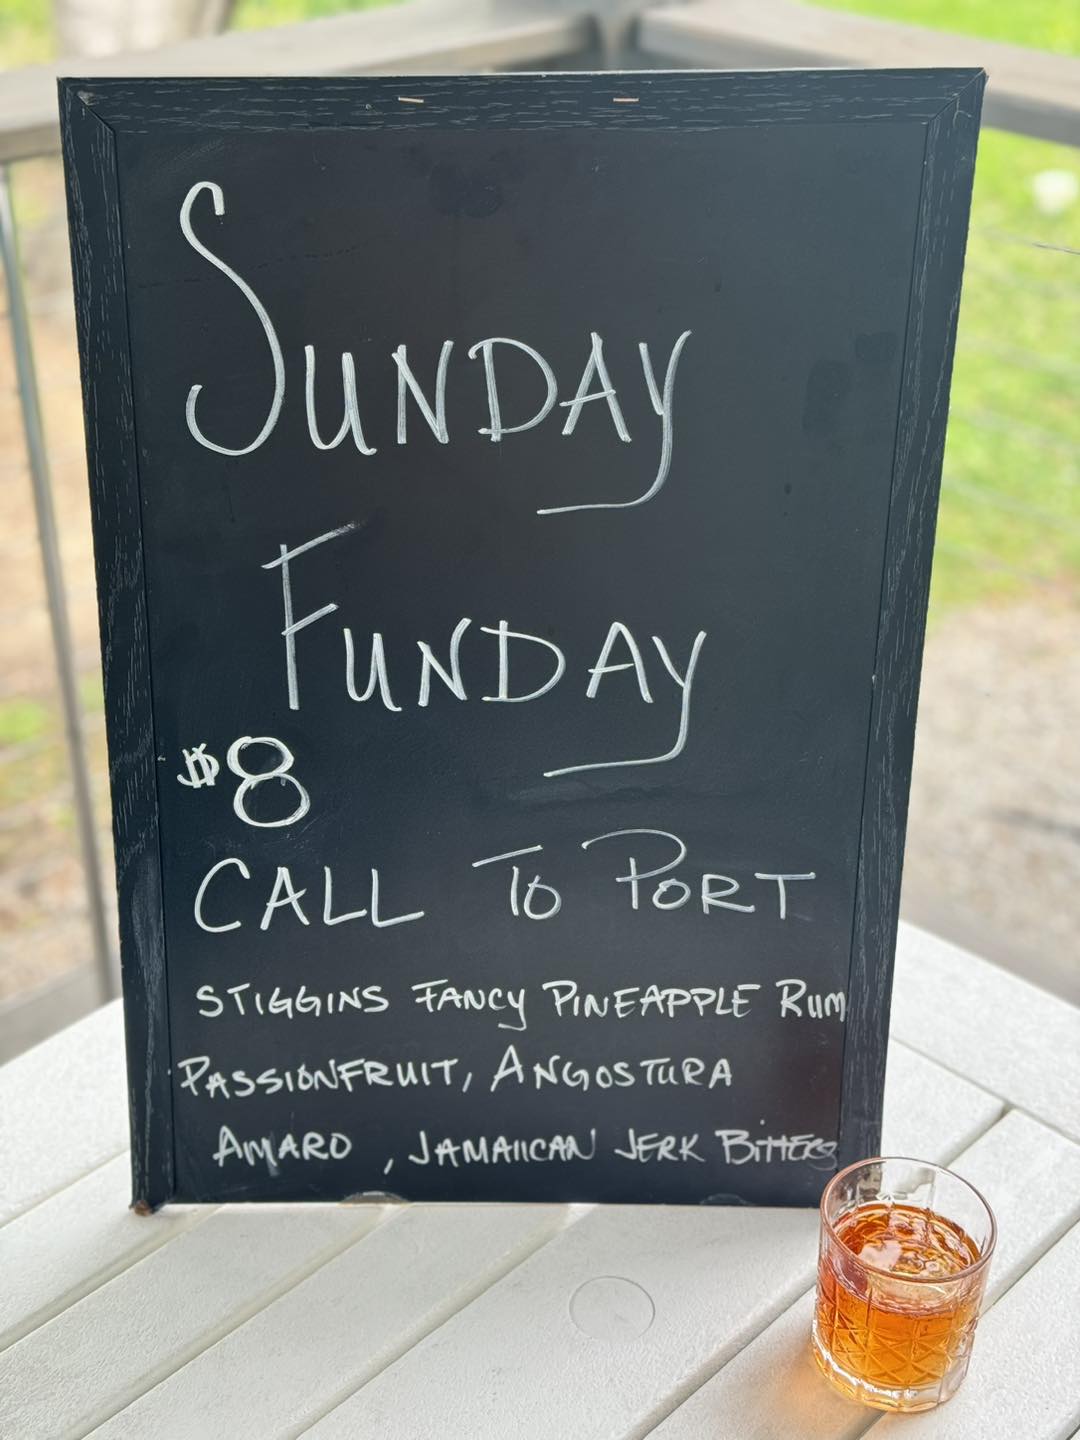 SUNDAY
FUNDAY
$8
CALL TO PORT
STIGGINS FANCY PINEAPPLE RUM
PASSIONFRUIT, ANGOSTURA
AMARO, JAMAIICAN JERK BITTERS